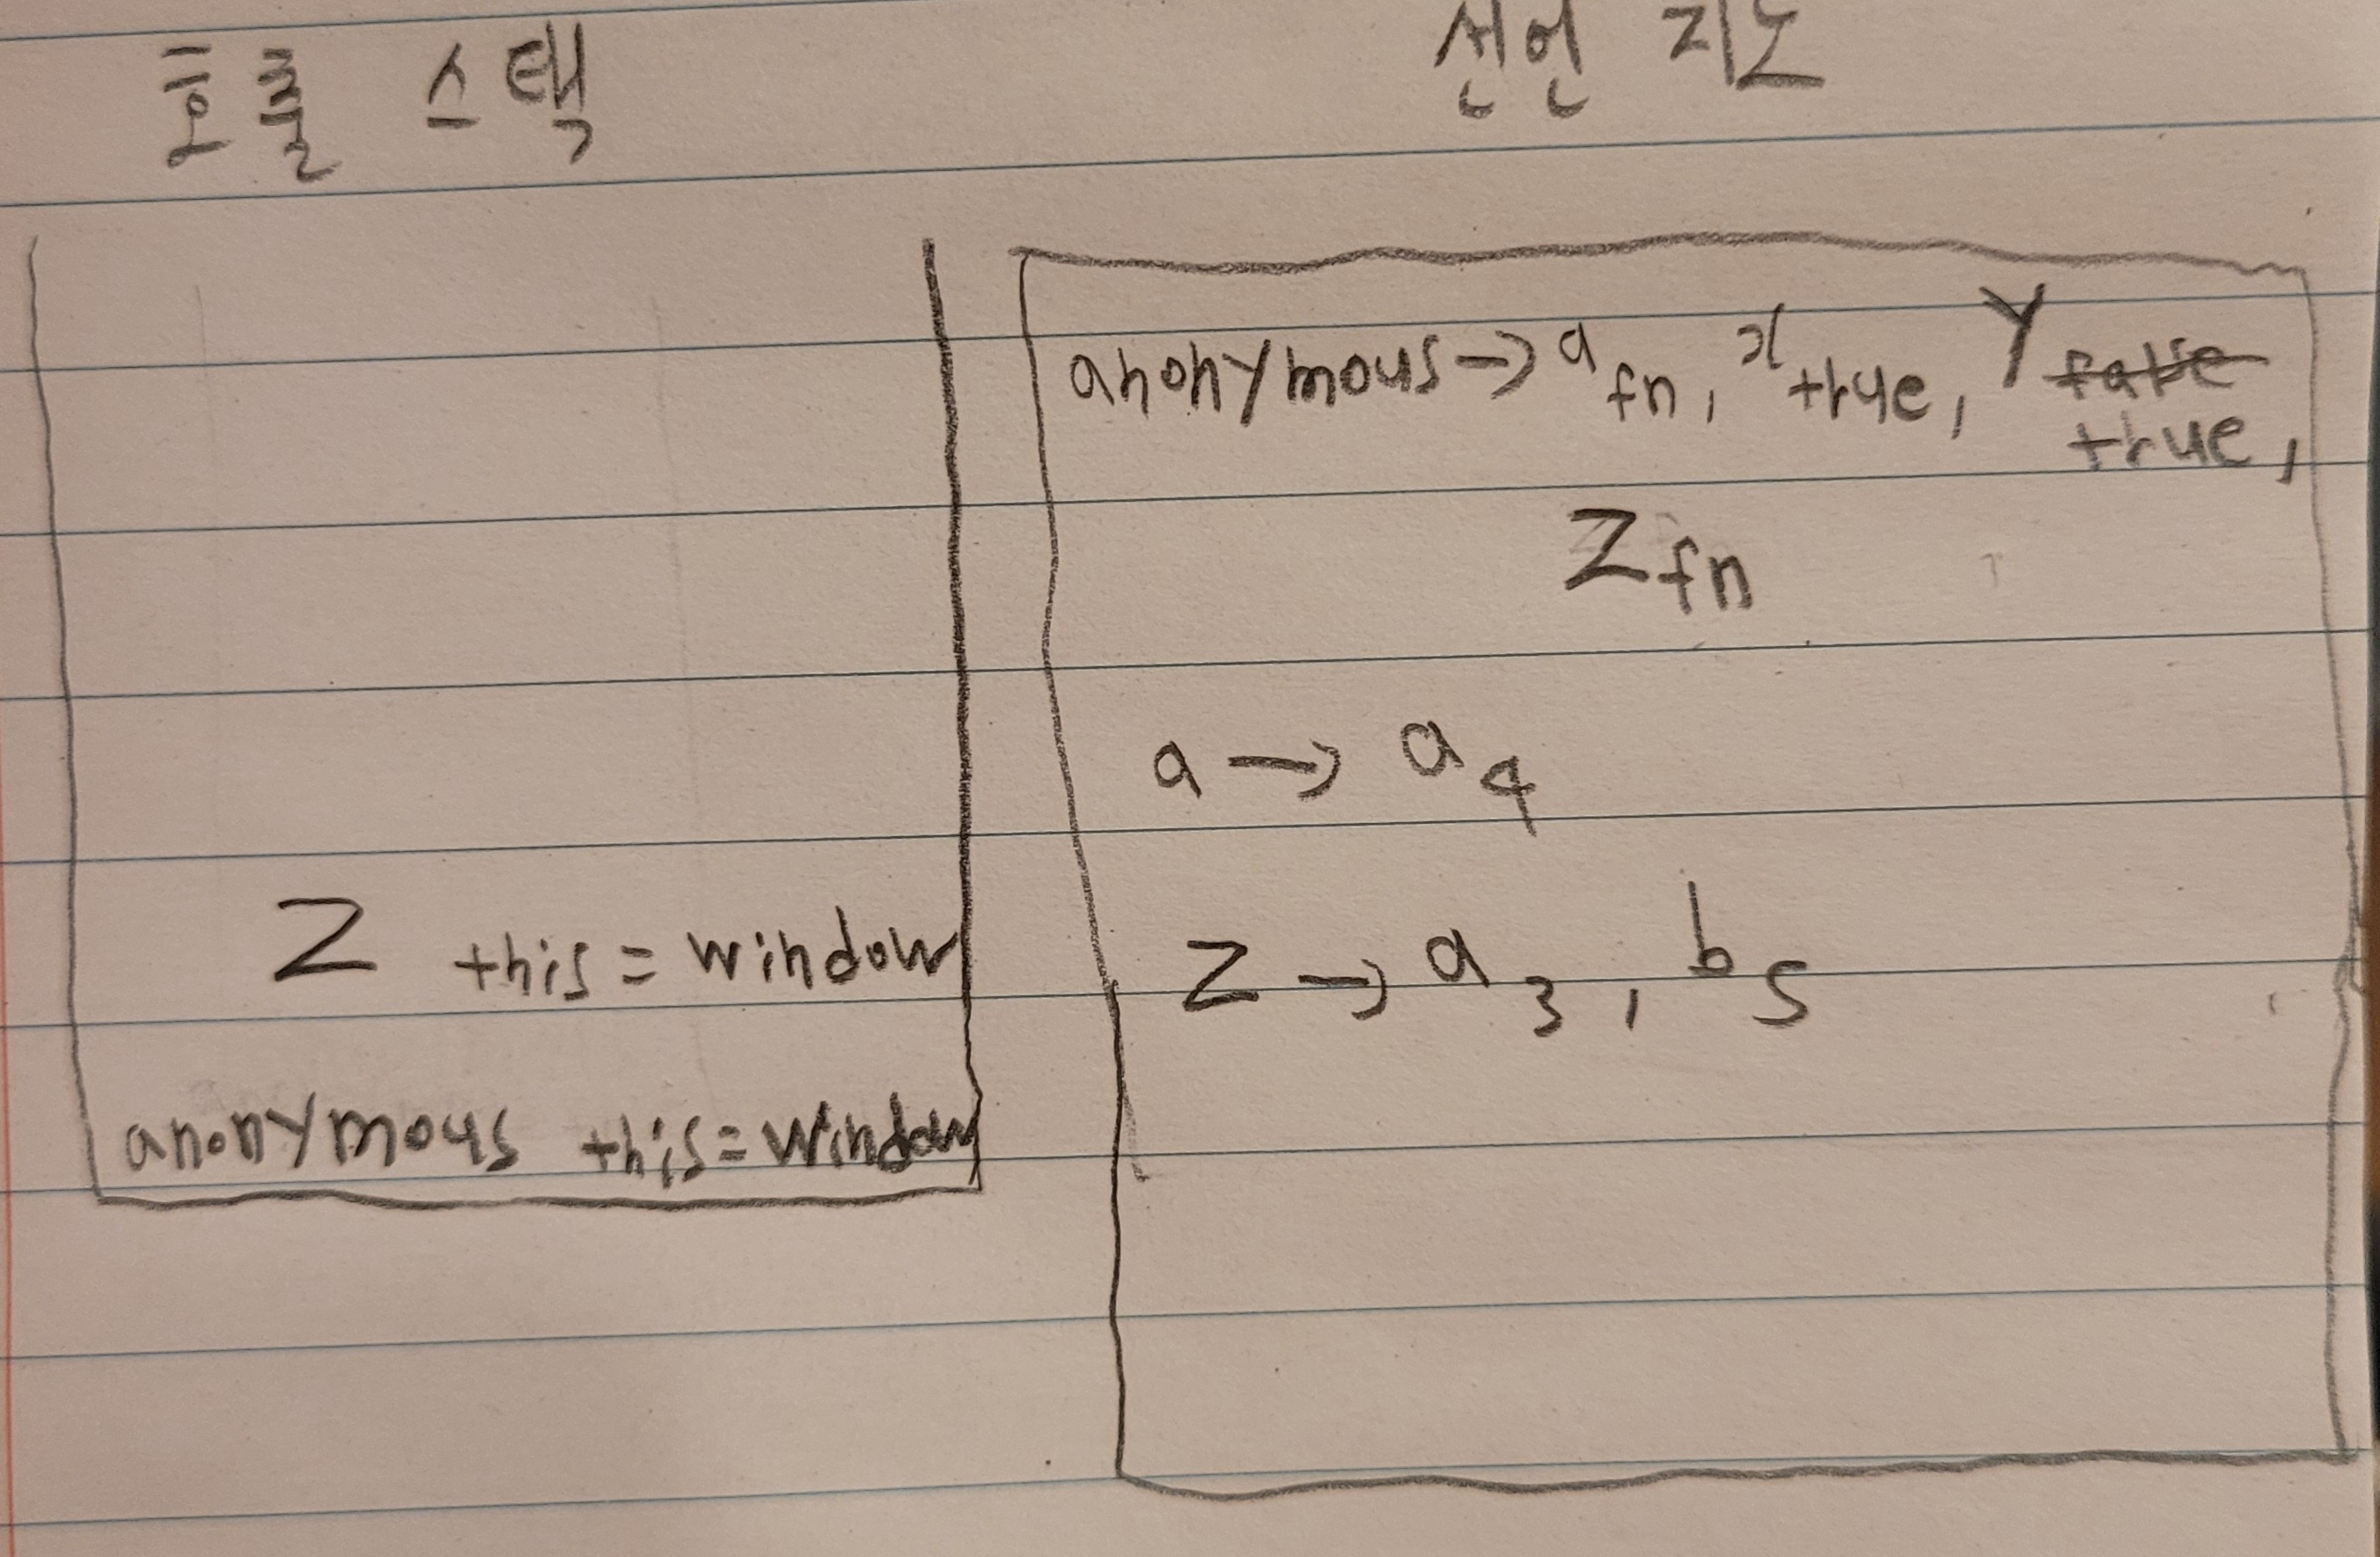 호출 스택
선언 지도
anonymous → a fn, x true, y false true,
z fn
a → a 4
z → a 3, b 5
z this = window
anonymous this = window